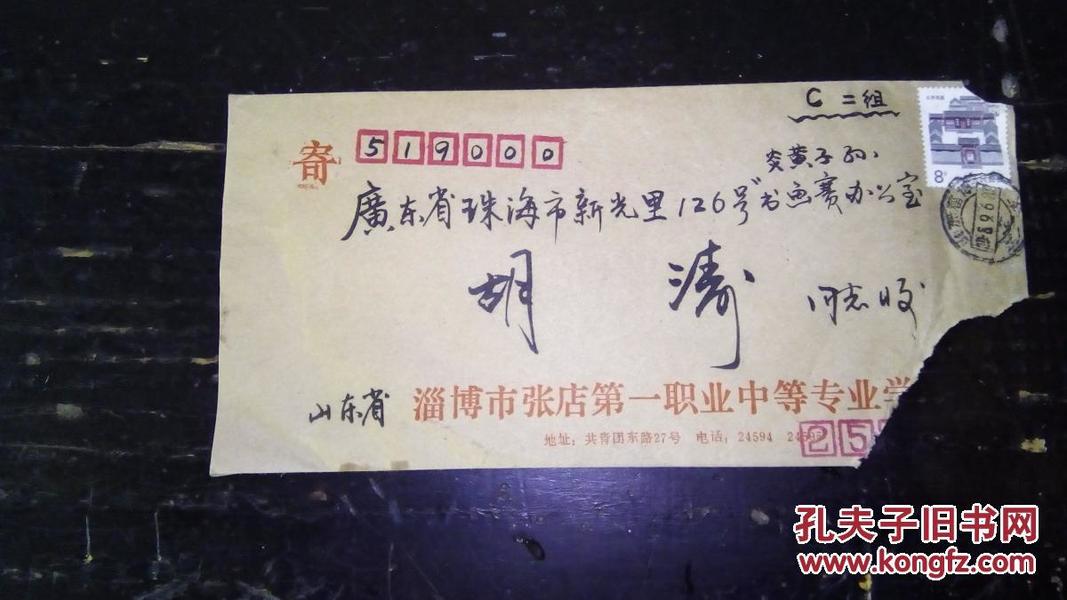 C 二组
寄
519000
炎黄子孙
廣东省珠海市新光里126号"书画赛办公室
胡 涛 同志收
山东省 淄博市张店第一职业中等专业学
地址：共青团东路27号 电话：24594
25
8
孔夫子旧书网
www.kongfz.com